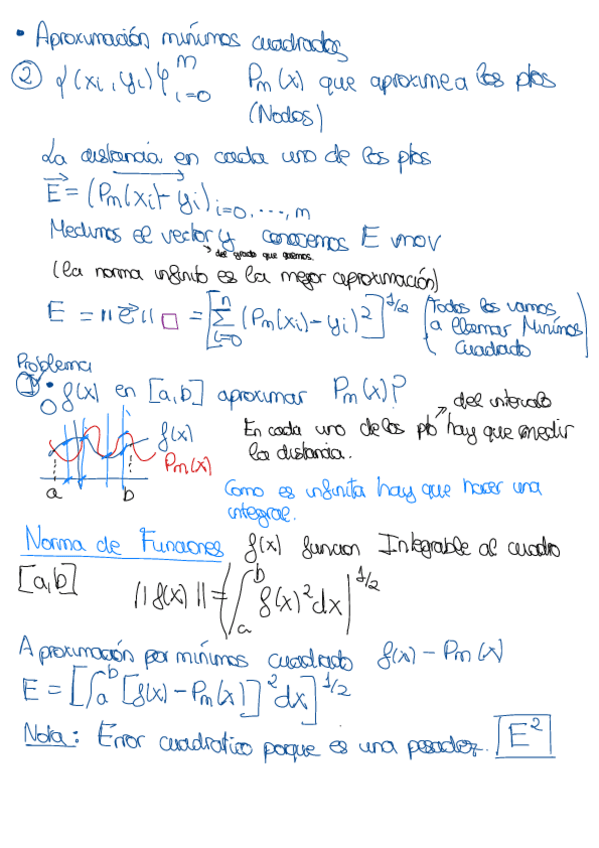 • Aproximación mínimos cuadrados
② {(xi, yi)}ᵐ i=0 Pm(x) que aproxime a los ptos
(Nodos)
La distancia en cada uno de los ptos
E = (Pm(xi) - yi) i=0, ..., m
Medimos el vector y conocemos E mov
del grado que queramos.
(la norma infinito es la mejor aproximación)
E = ||E|| □ = [Σ i=0 n (Pm(xi) - yi)²]^1/2 (Todos los vamos
a llamar Mínimos
cuadrado)
Problema
① • f(x) en [a,b] aproximar Pm(x)?
del intervalo
En cada uno de los pto hay que medir
la distancia.
f(x)
Pm(x)
a b
Como es infinita hay que hacer una
integral.
Norma de Funciones f(x) funcion Integrable al cuadro
[a,b] ||f(x)|| = (∫ a b f(x)² dx)^1/2
Aproximación por mínimos cuadrado f(x) - Pm(x)
E = [∫ a b [f(x) - Pm(x)]² dx]^1/2
Nota: Error cuadratico porque es una pesadez. E²